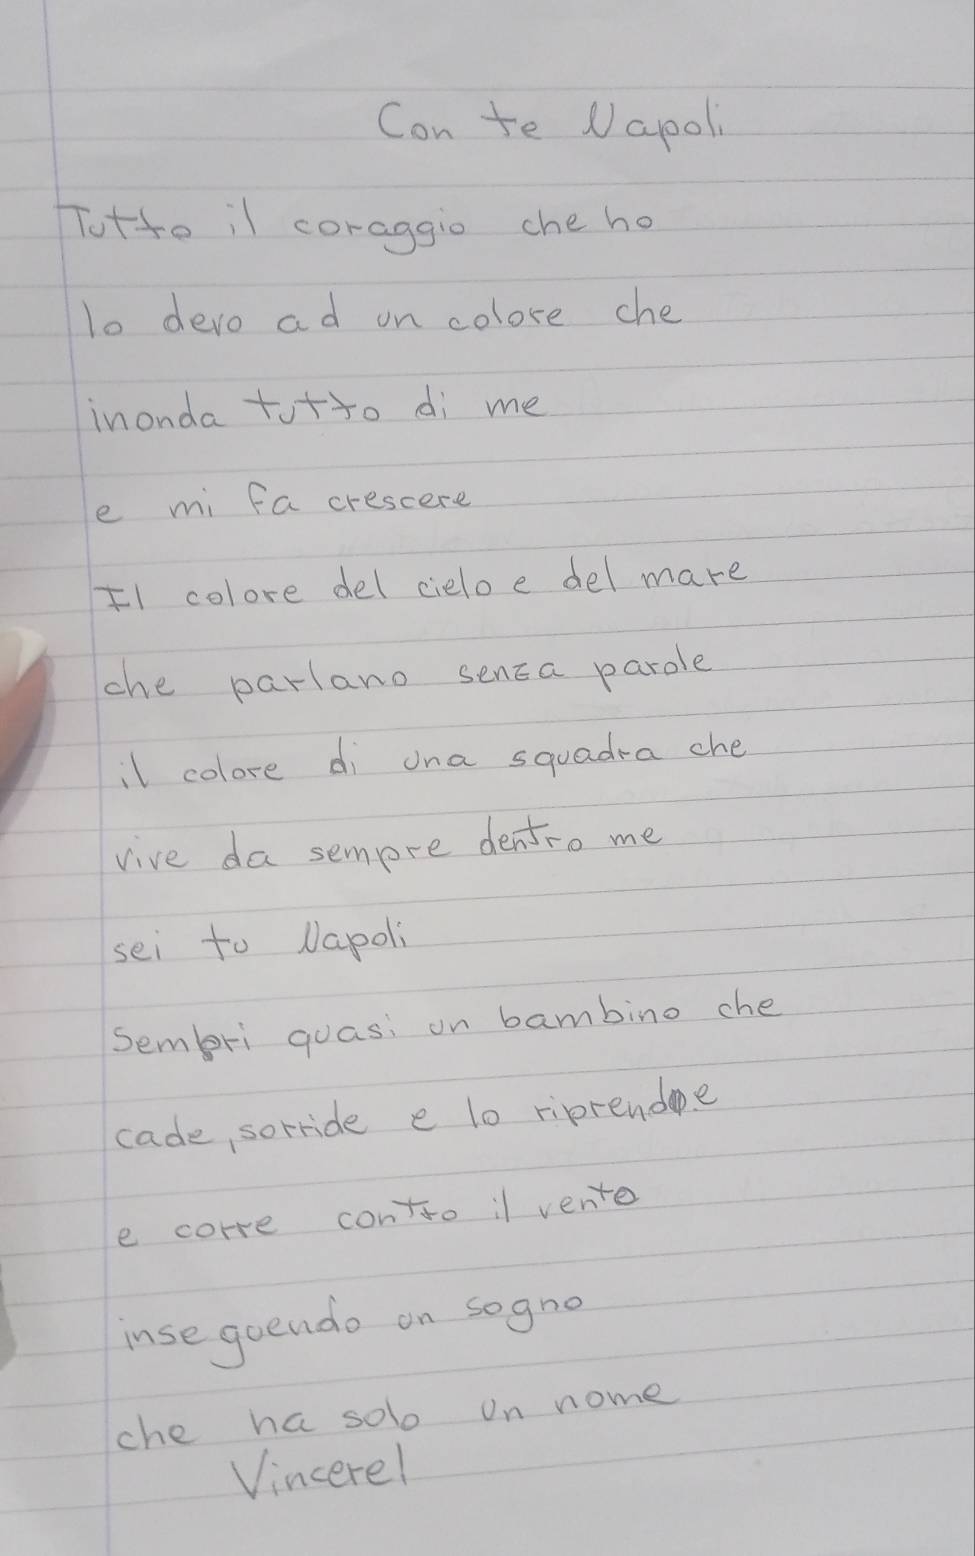 Con te Napoli
Tutto il coraggio che ho
lo devo ad un colore che
inonda tutto di me
e mi fa crescere
Il colore del cielo e del mare
che parlano senza parole
il colore di una squadra che
vive da sempre dentro me
sei tu Napoli
Sembri quasi un bambino che
cade, sorride e lo riprende
e corre contro il vento
inseguendo un sogno
che ha solo un nome
Vincere!